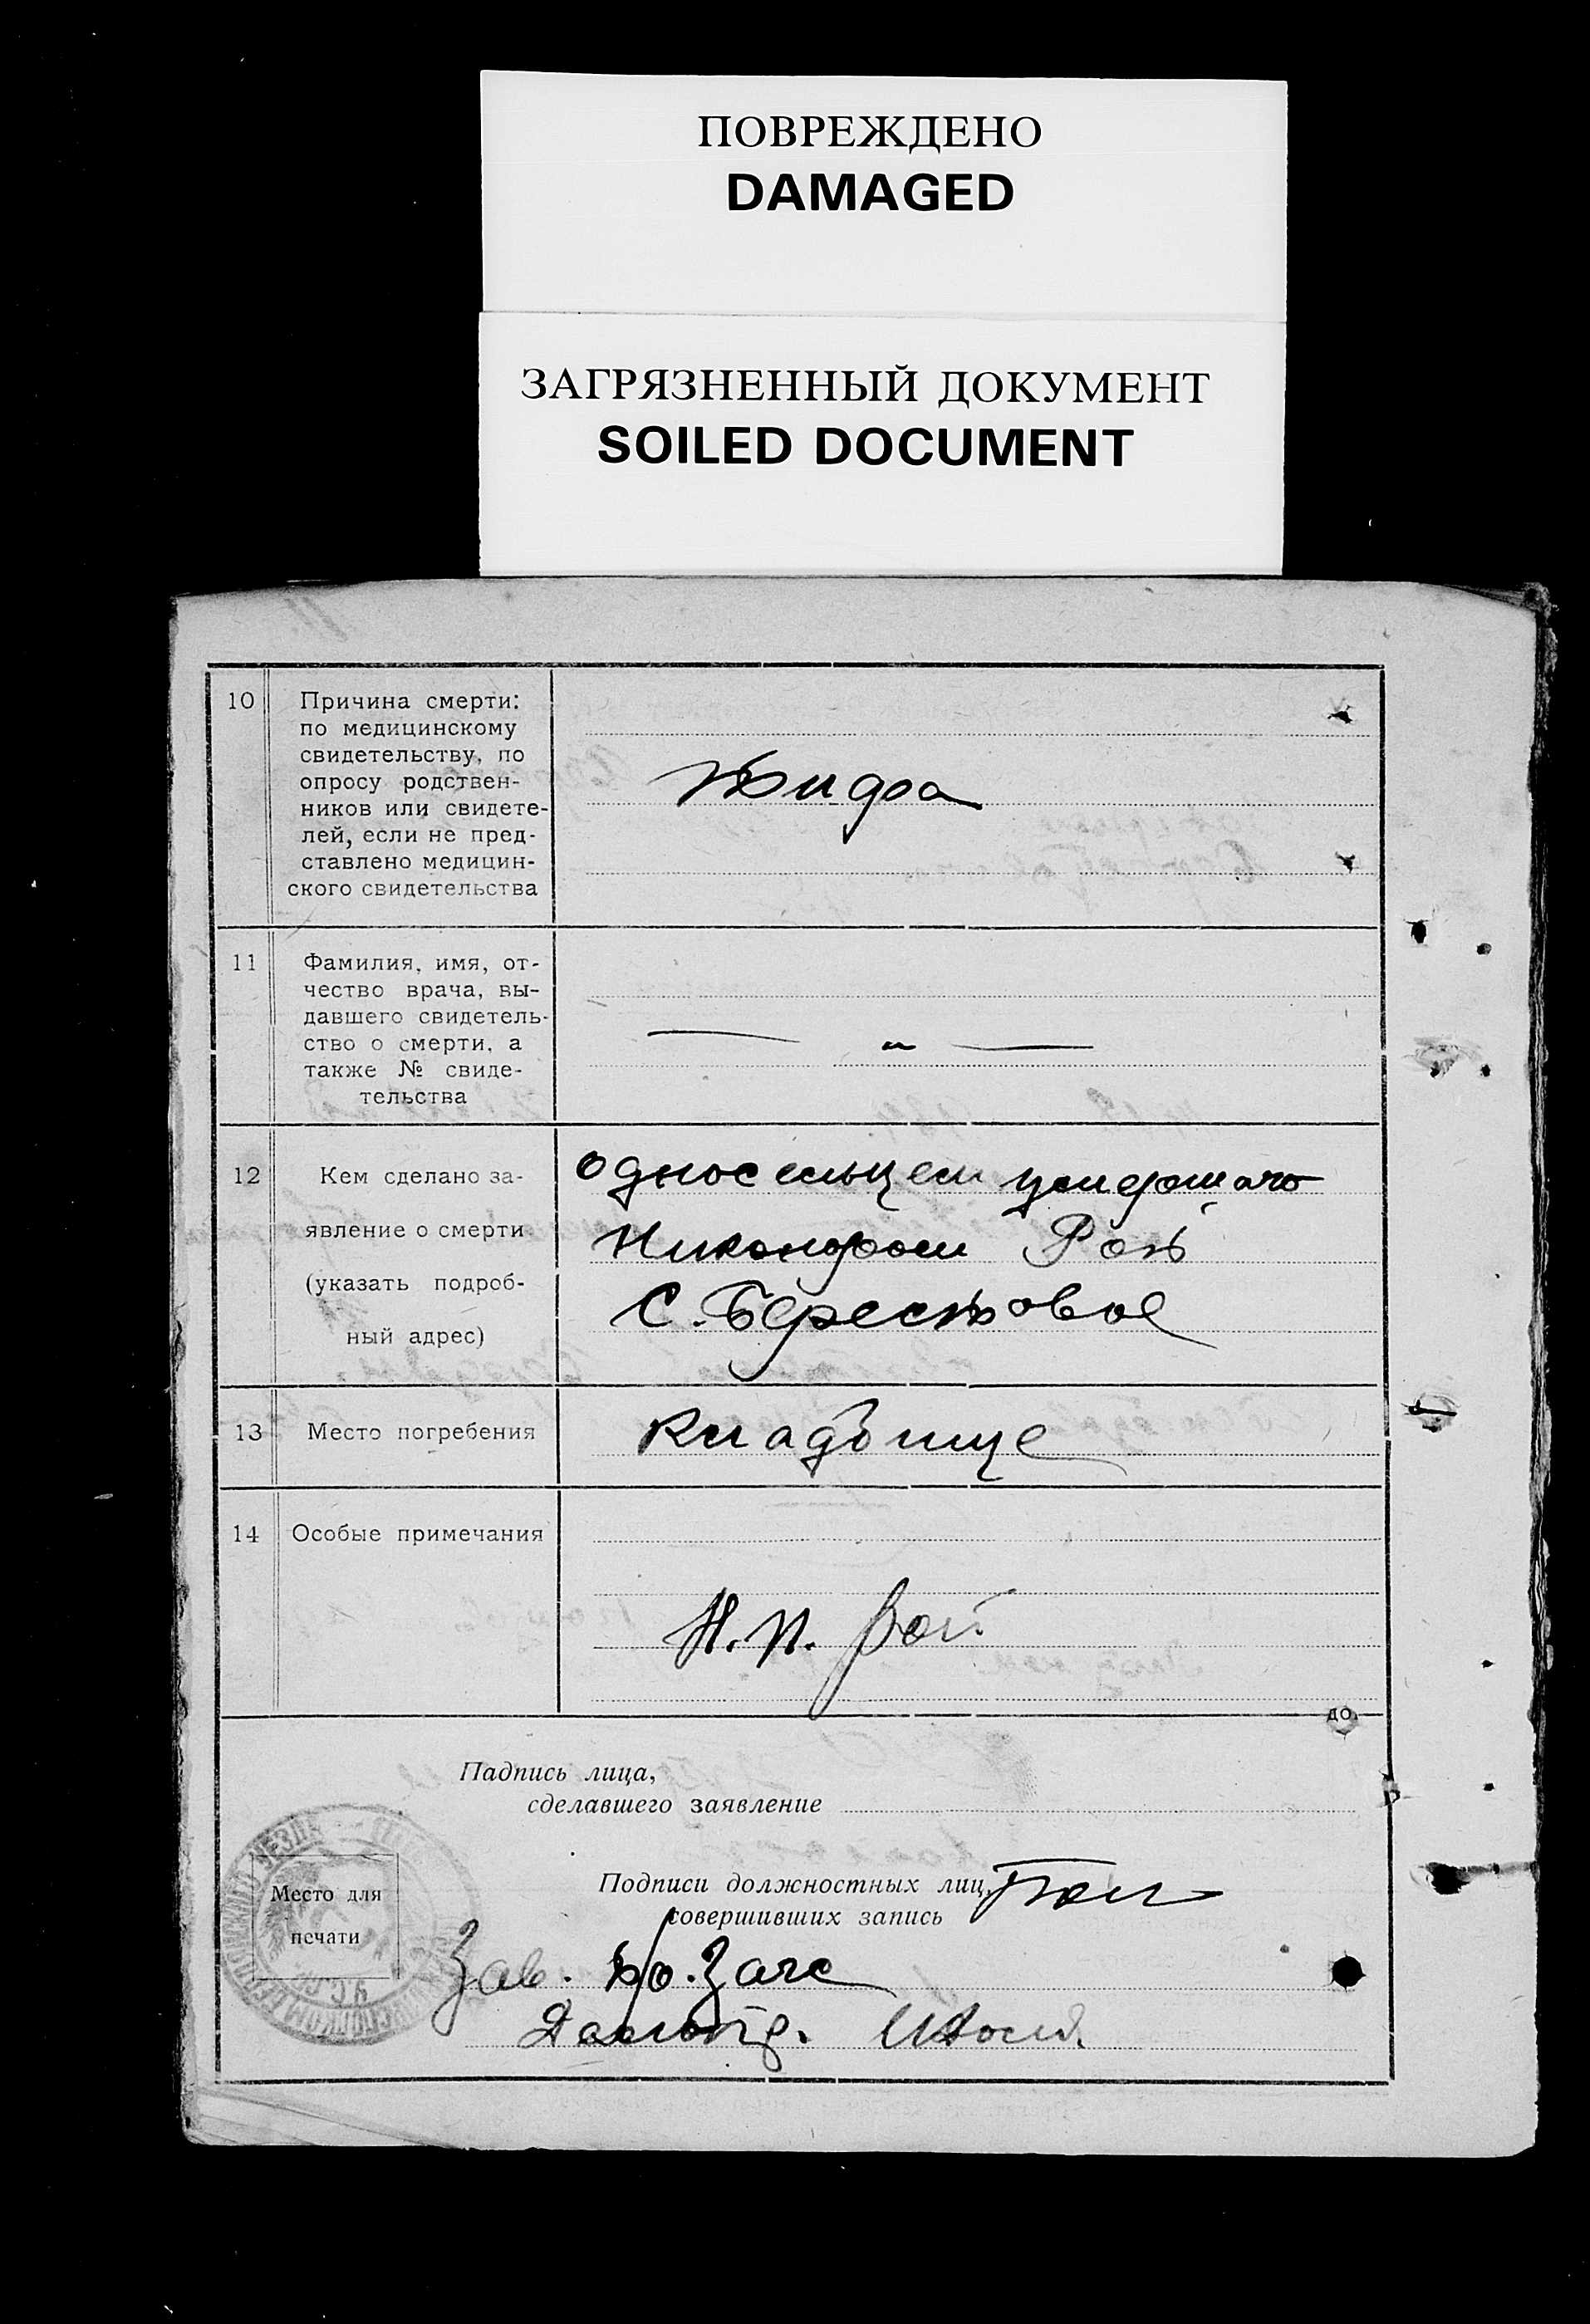 ПОВРЕЖДЕНО
DAMAGED
ЗАГРЯЗНЕННЫЙ ДОКУМЕНТ
SOILED DOCUMENT
10 Причина смерти:
по медицинскому
свидетельству, по
опросу родствен-
ников или свидете-
лей, если не пред-
ставлено медицин-
ского свидетельства
11 Фамилия, имя, от-
чество врача, вы-
давшего свидетель-
ство о смерти, а
также № свиде-
тельства
— " —
12 Кем сделано за-
явление о смерти
(указать подроб-
ный адрес)
односельцем умершаго
Никонором Рой
С. Берестовое
13 Место погребения
Кладбище
14 Особые примечания
Н. П. Рой
до.
Падпись лица,
сделавшего заявление
Место для
печати
Подписи должностных лиц,
совершивших запись
Зав. по. Загс